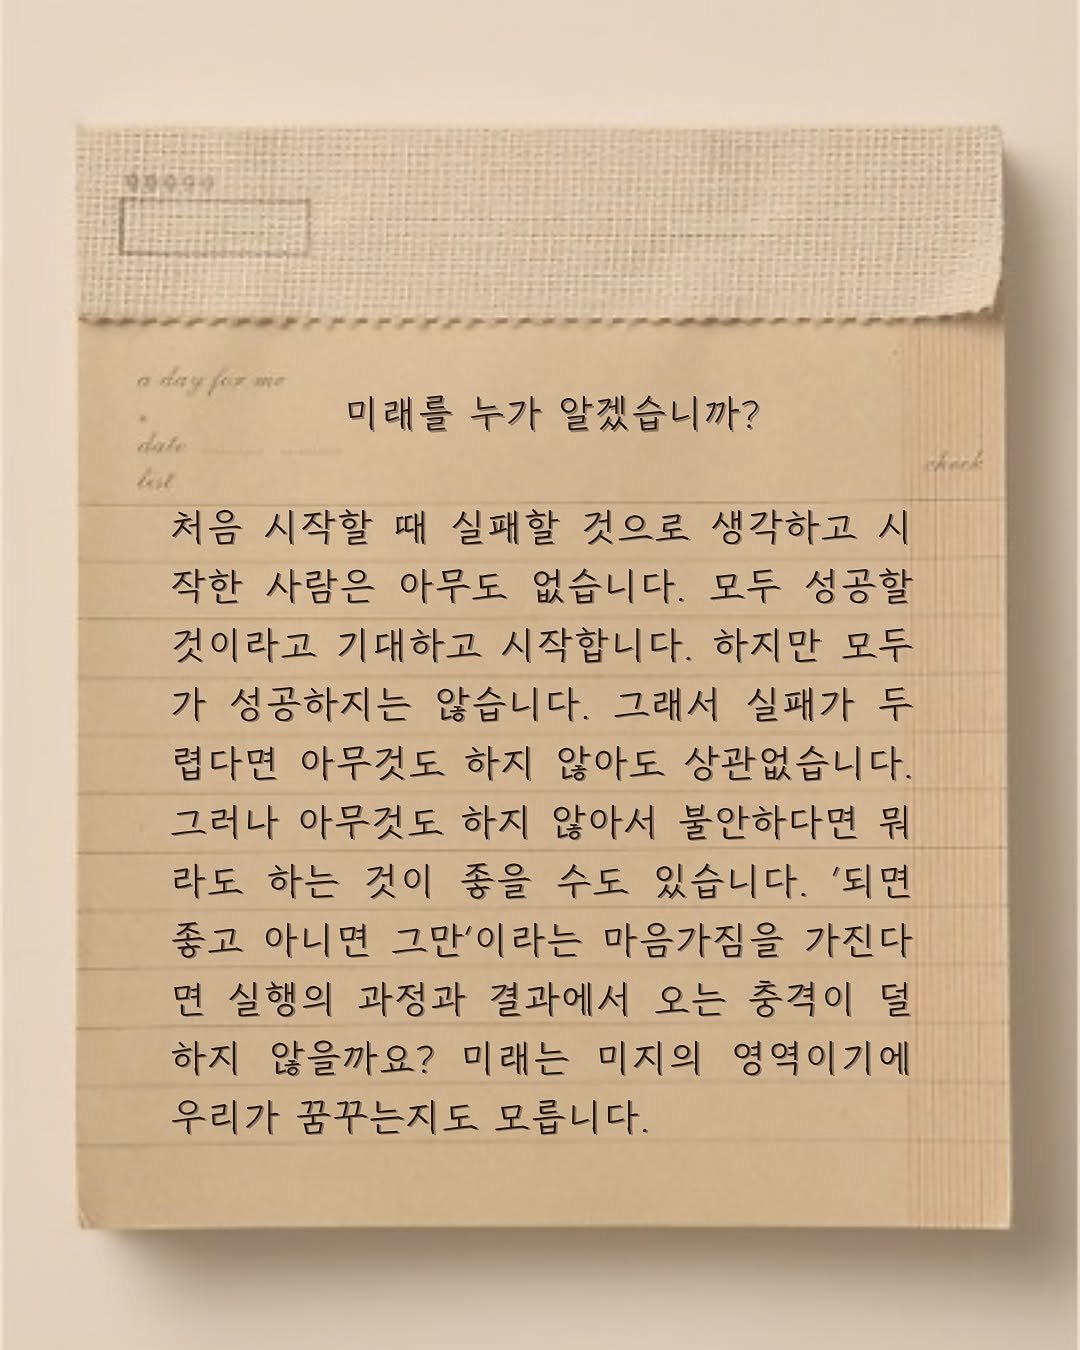 a day for me
미래를 누가 알겠습니까?
date
list
check
처음 시작할 때 실패할 것으로 생각하고 시
작한 사람은 아무도 없습니다. 모두 성공할
것이라고 기대하고 시작합니다. 하지만 모두
가 성공하지는 않습니다. 그래서 실패가 두
렵다면 아무것도 하지 않아도 상관없습니다.
그러나 아무것도 하지 않아서 불안하다면 뭐
라도 하는 것이 좋을 수도 있습니다. '되면
좋고 아니면 그만'이라는 마음가짐을 가진다
면 실행의 과정과 결과에서 오는 충격이 덜
하지 않을까요? 미래는 미지의 영역이기에
우리가 꿈꾸는지도 모릅니다.